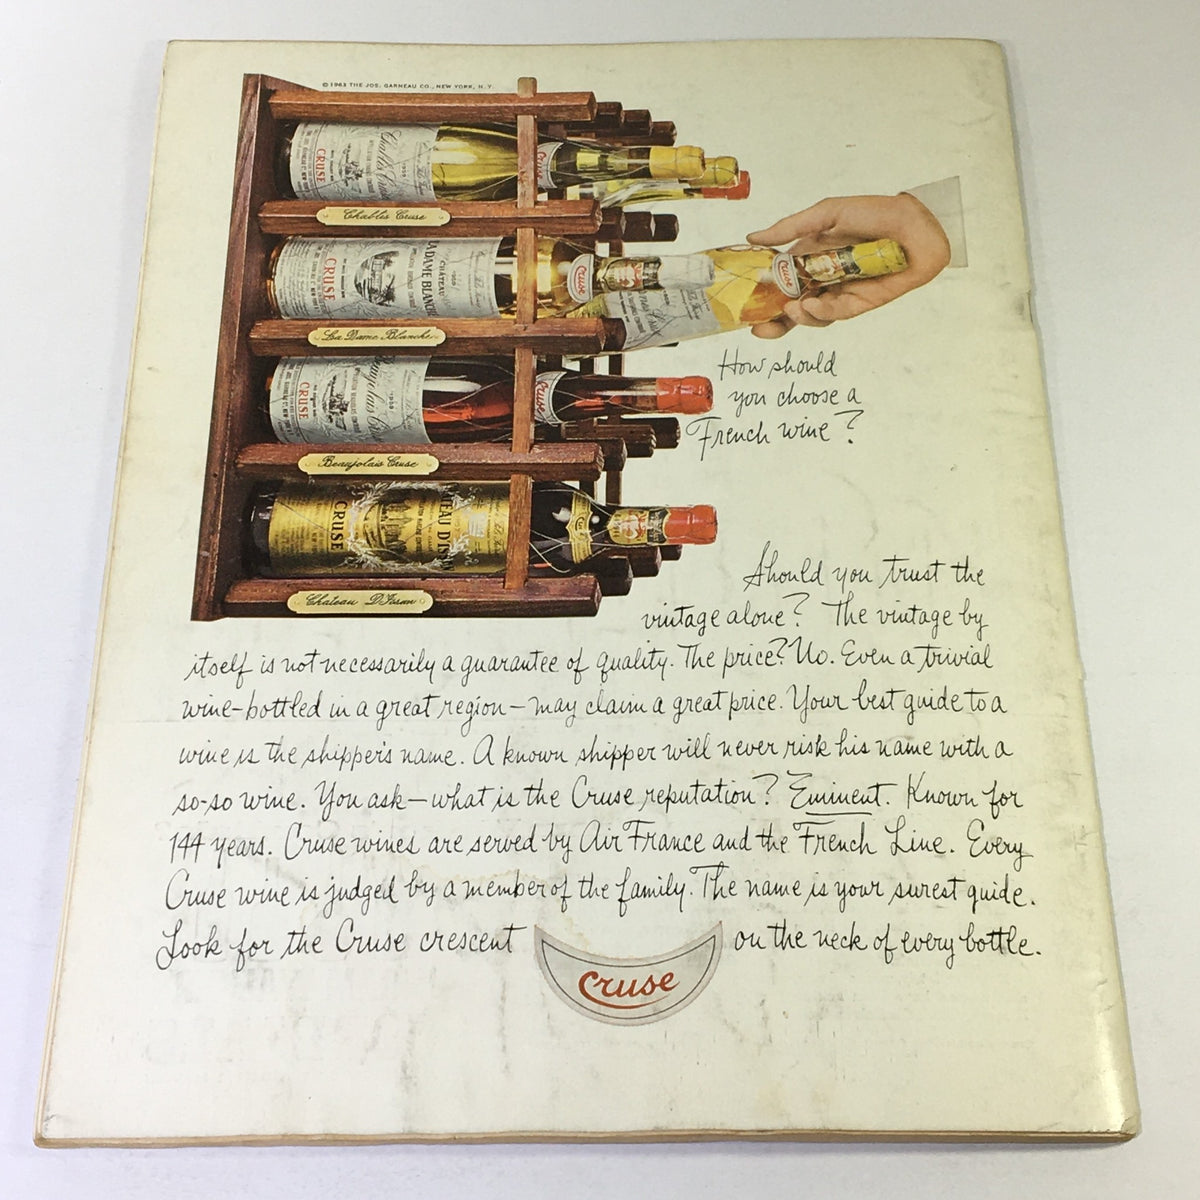 © 1963 THE JOS. GARNEAU CO., NEW YORK, N. Y.
CRUSE
Cruse
Chablis Cruse
CRUSE
CHÂTEAU
LA DAME BLANCHE
Cruse
Cruse
La Dame Blanche
CRUSE
Beaujolais
Cruse
Beaujolais Cruse
CRUSE
Chateau D'Issan
How should
you choose a
French wine?
Should you trust the
vintage alone? The vintage by
itself is not necessarily a guarantee of quality. The price? No. Even a trivial
wine-bottled in a great region—may claim a great price. Your best guide to a
wine is the shipper's name. A known shipper will never risk his name with a
so-so wine. You ask—what is the Cruse reputation? Eminent. Known for
144 years. Cruse wines are served by Air France and the French Line. Every
Cruse wine is judged by a member of the family. The name is your surest guide.
Look for the Cruse crescent on the neck of every bottle.
Cruse